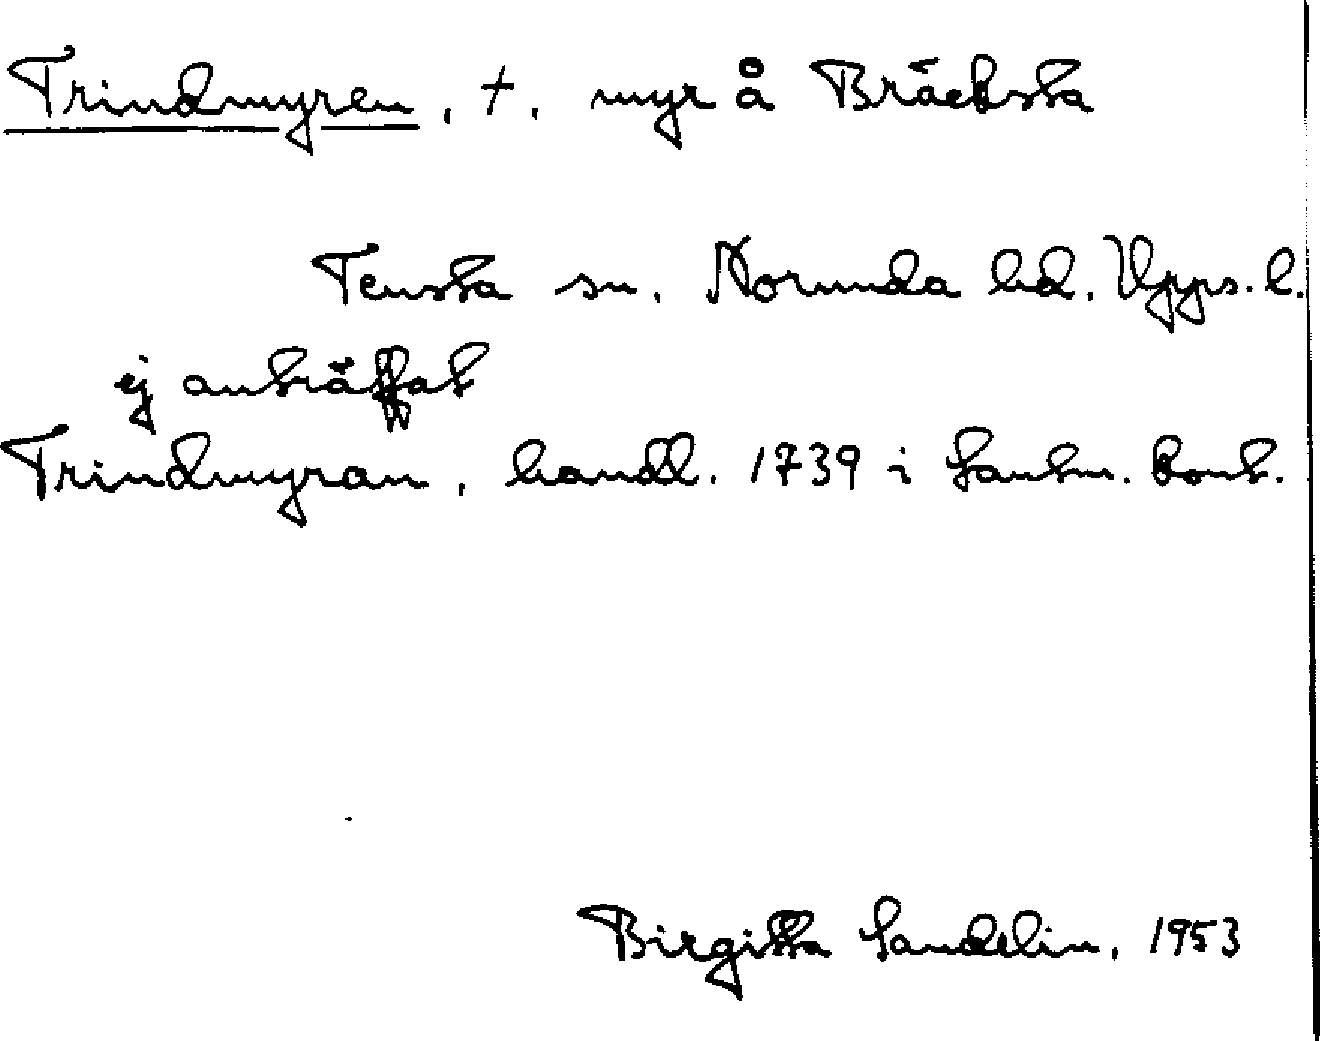 Trindmyren, +. myr å Bräcksta
Tensta sn. Norunda hd. Upps. l.
ej anträffat
Trindmyran, handl. 1739 i Lantm. kont.
Birgitta Sandelin, 1953